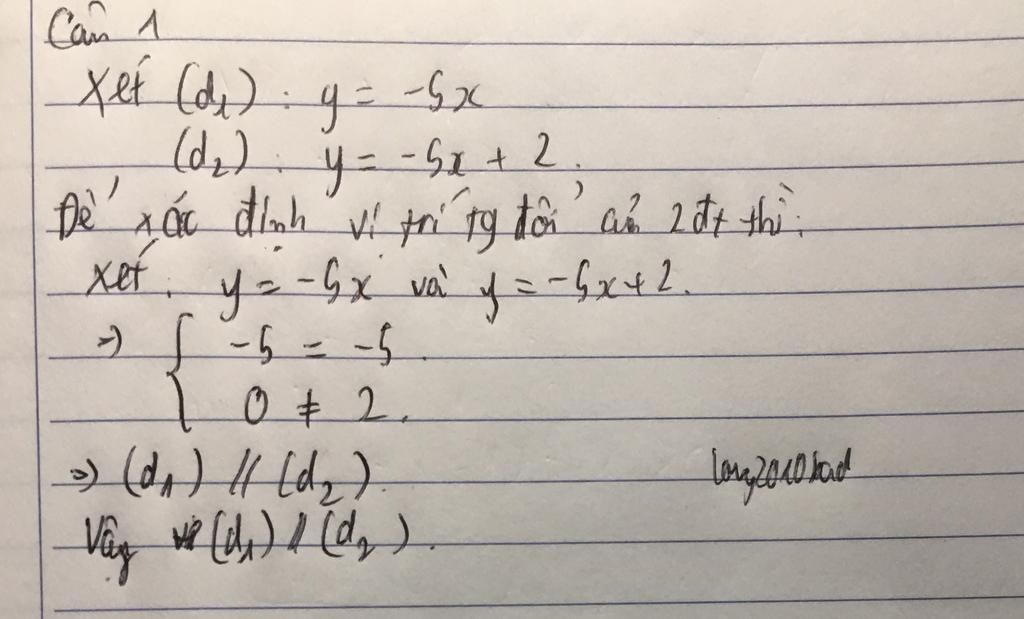 Câu 1
Xét (d₁) : y = -5x
(d₂) : y = -5x + 2.
Để xác định vị trí tg đối của 2 đt thì:
Xét: y = -5x và y = -5x + 2.
=> { -5 = -5.
0 ≠ 2.
=> (d₁) // (d₂).
Vậy (d₁) // (d₂).